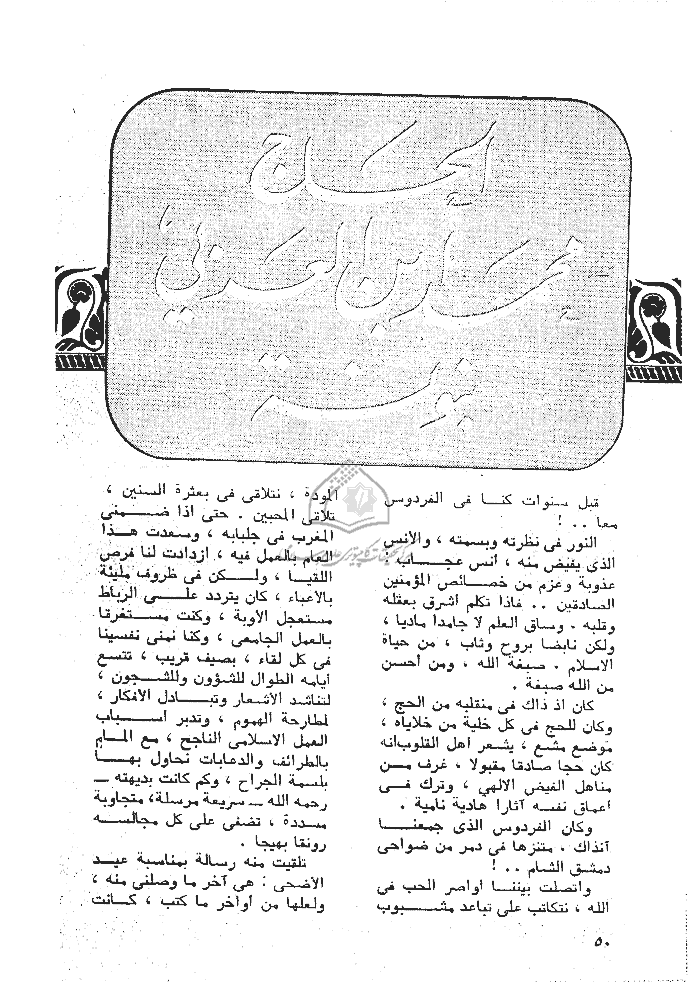 الحاج
محمد بن العربي
بنونة
قبل سنوات كنا فى الفردوس
معا . . !
النور فى نظرته وبسمته ، والأنس
الذى يفيض منه ، أنس عجاب ،
عذوبة وعزم من خصائص المؤمنين
الصادقين . . فاذا تكلم أشرق بعقله
وقلبه . وساق العلم لا جامدا ماديا ،
ولكن نابضا بروح وثاب ، من حياة
الاسلام . صبغة الله ، ومن أحسن
من الله صبغة .
كان اذ ذاك فى منقلبه من الحج ،
وكان للحج فى كل خلية من خلاياه ،
موضع مشع ، يشعر أهل القلوب أنه
كان حجا صادقا مقبولا ، غرف من
مناهل الفيض الالهي ، وترك فى
أعماق نفسه آثارا هادية نامية .
وكان الفردوس الذى جمعنا
آنذاك ، متنزها فى دمر من ضواحى
دمشق الشام . . !
واتصلت بيننا أواصر الحب فى
الله ، نتكاتب على تباعد مشبوب
المودة ، نتلاقى فى بعثرة السنين ،
تلاقى المحبين . حتى اذا ضمنى
المغرب فى جلبابه ، وسعدت هذا
العام بالعمل فيه ، ازدادت لنا فرص
اللقيا ، ولكن فى ظروف مليئة
بالأعباء ، كان يتردد على الرباط
مستعجل الأوبة ، وكنت مستغرقا
بالعمل الجامعى ، وكنا نمنى نفسينا
فى كل لقاء ، بصيف قريب ، تتسع
أيامه الطوال للشؤون وللشجون ،
لتناشد الأشعار وتبادل الأفكار ،
لمطارحة الهموم ، وتدبر أسباب
العمل الاسلامى الناجح ، مع المام
بالطرائف والدعابات نحاول بها
بلسمة الجراح ، وكم كانت بديهته —
رحمه الله — سريعة مرسلة، متجاوبة
مسددة ، تضفى على كل مجالسه
رونقا بهيجا .
تلقيت منه رسالة بمناسبة عيد
الأضحى : هى آخر ما وصلنى منه ،
ولعلها من أواخر ما كتب ، كانت
٥٠